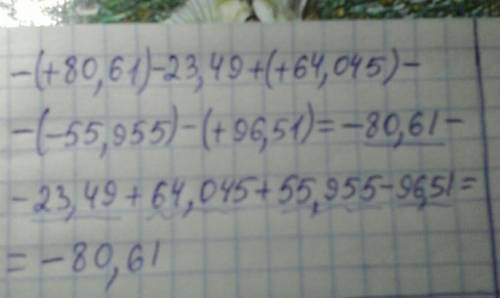 -(+80,61)-23,49+(+64,045)-
-(-55,955)-(+96,51)=-80,61-
-23,49+64,045+55,955-96,51=
=-80,61